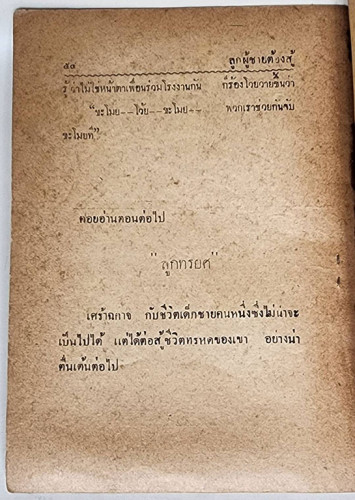 ๕๔ ลูกผู้ชายต้องสู้
รู้ว่าไม่ใช่หน้าตาเพื่อนร่วมโรงงานกัน ก็ร้องโวยวายขึ้นว่า
"ขะโมย--โว้ย--ขะโมย-- พวกเราช่วยกันจับ
ขะโมยที"
คอยอ่านตอนต่อไป
"ลูกทรยศ"
เศร้า กับชีวิตเด็กชายคนหนึ่งซึ่งไม่น่าจะ
เป็นไปได้ แต่ได้ต่อสู้ชีวิตทรหดของเขา อย่างน่า
ตื่นเต้นต่อไป